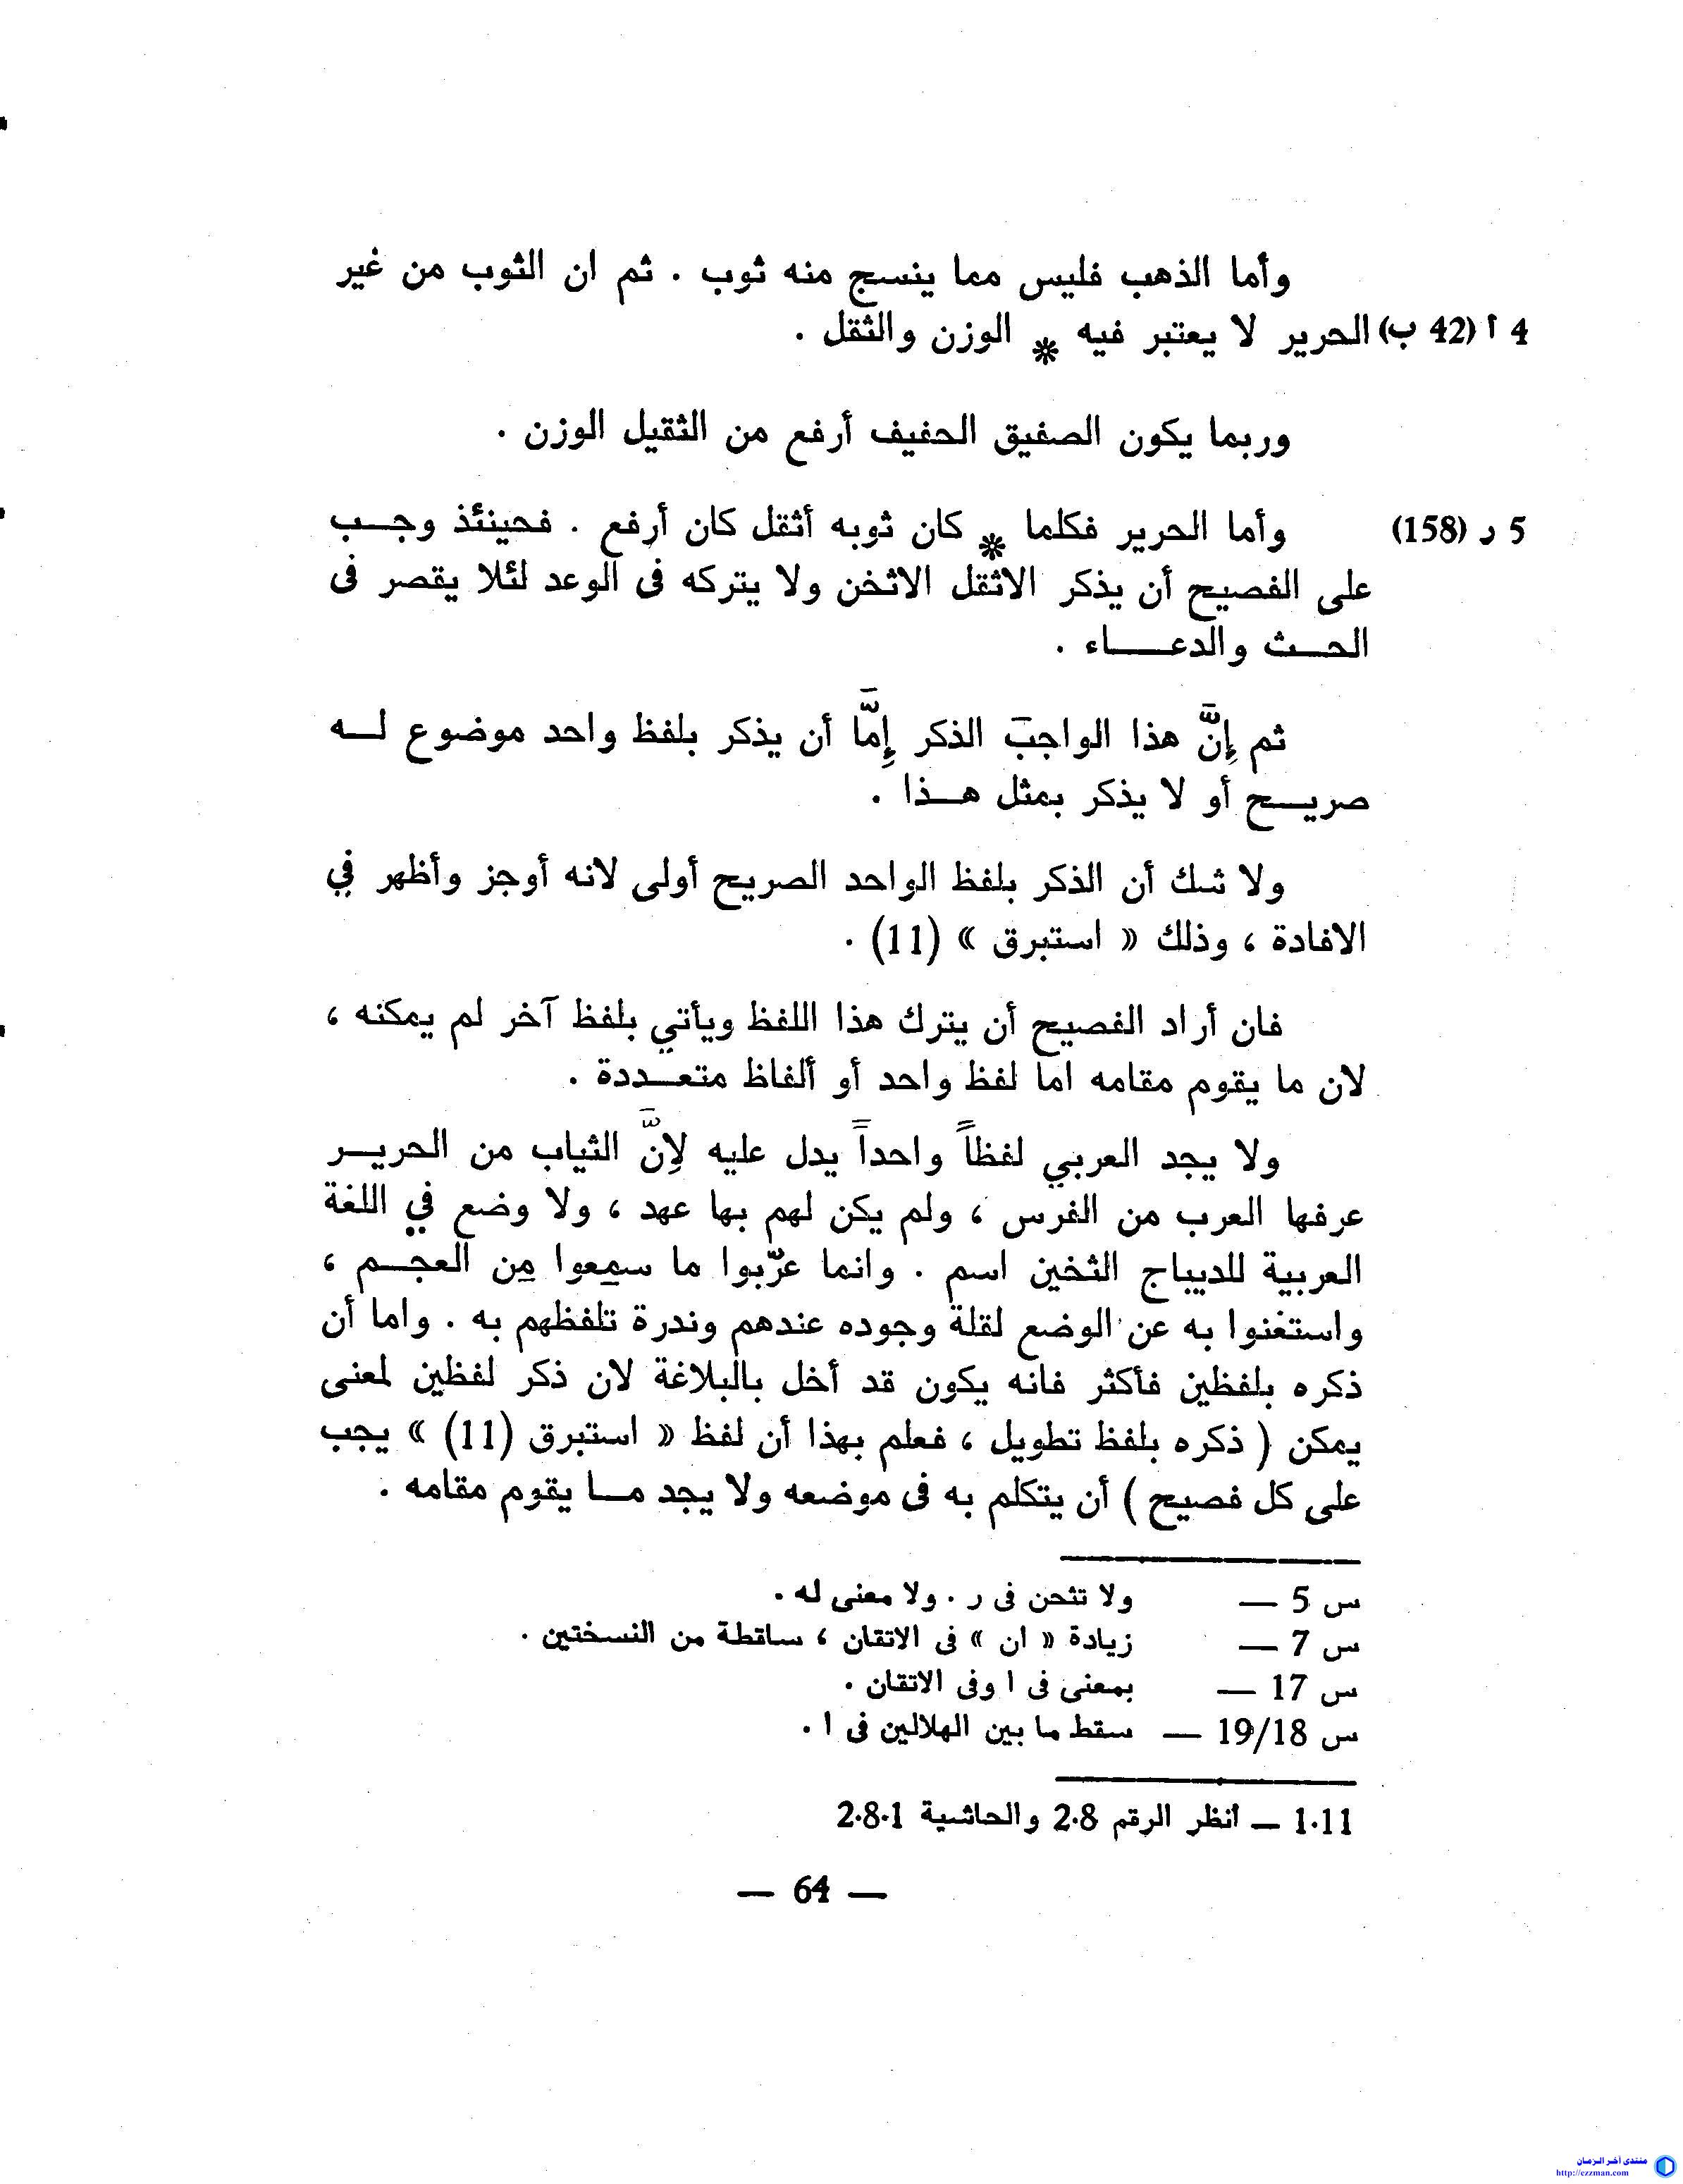 وأما الذهب فليس مما ينسج منه ثوب . ثم ان الثوب من غير
4 أ (42 ب) الحرير لا يعتبر فيه * الوزن والثقل .
وربما يكون الصفيق الخفيف أرفع من الثقيل الوزن .
5 ر (158) وأما الحرير فكلما * كان ثوبه أثقل كان أرفع . فحينئذ وجب
على الفصيح أن يذكر الاثقل الاثخن ولا يتركه فى الوعد لئلا يقصر فى
الحث والدعاء .
ثم إنَّ هذا الواجبَ الذكر إمَّا أن يذكر بلفظ واحد موضوع له
صريح أو لا يذكر بمثل هذا .
ولا شك أن الذكر بلفظ الواحد الصريح أولى لانه أوجز وأظهر في
الافادة ، وذلك « استبرق » (11) .
فان أراد الفصيح أن يترك هذا اللفظ ويأتي بلفظ آخر لم يمكنه ،
لان ما يقوم مقامه اما لفظ واحد أو ألفاظ متعددة .
ولا يجد العربي لفظاً واحداً يدل عليه لِانَّ الثياب من الحرير
عرفها العرب من الفرس ، ولم يكن لهم بها عهد ، ولا وضع في اللغة
العربية للديباج الثخين اسم . وانما عرّبوا ما سمِعوا مِن العجم ،
واستغنوا به عن الوضع لقلة وجوده عندهم وندرة تلفظهم به . واما أن
ذكره بلفظين فأكثر فانه يكون قد أخل بالبلاغة لان ذكر لفظين لمعنى
يمكن ( ذكره بلفظ تطويل ، فعلم بهذا أن لفظ « استبرق (11) » يجب
على كل فصيح ) أن يتكلم به فى موضعه ولا يجد ما يقوم مقامه .
س 5 — ولا تثحن فى ر . ولا معنى له .
س 7 — زيادة « ان » فى الاتقان ، ساقطة من النسختين .
س 17 — بمعنى فى ا وفى الاتقان .
س 19/18 — سقط ما بين الهلالين فى ا .
1.11 — أنظر الرقم 2.8 والحاشية 2.8.1
— 64 —
منتدى أخر الزمان
http://ezzman.com